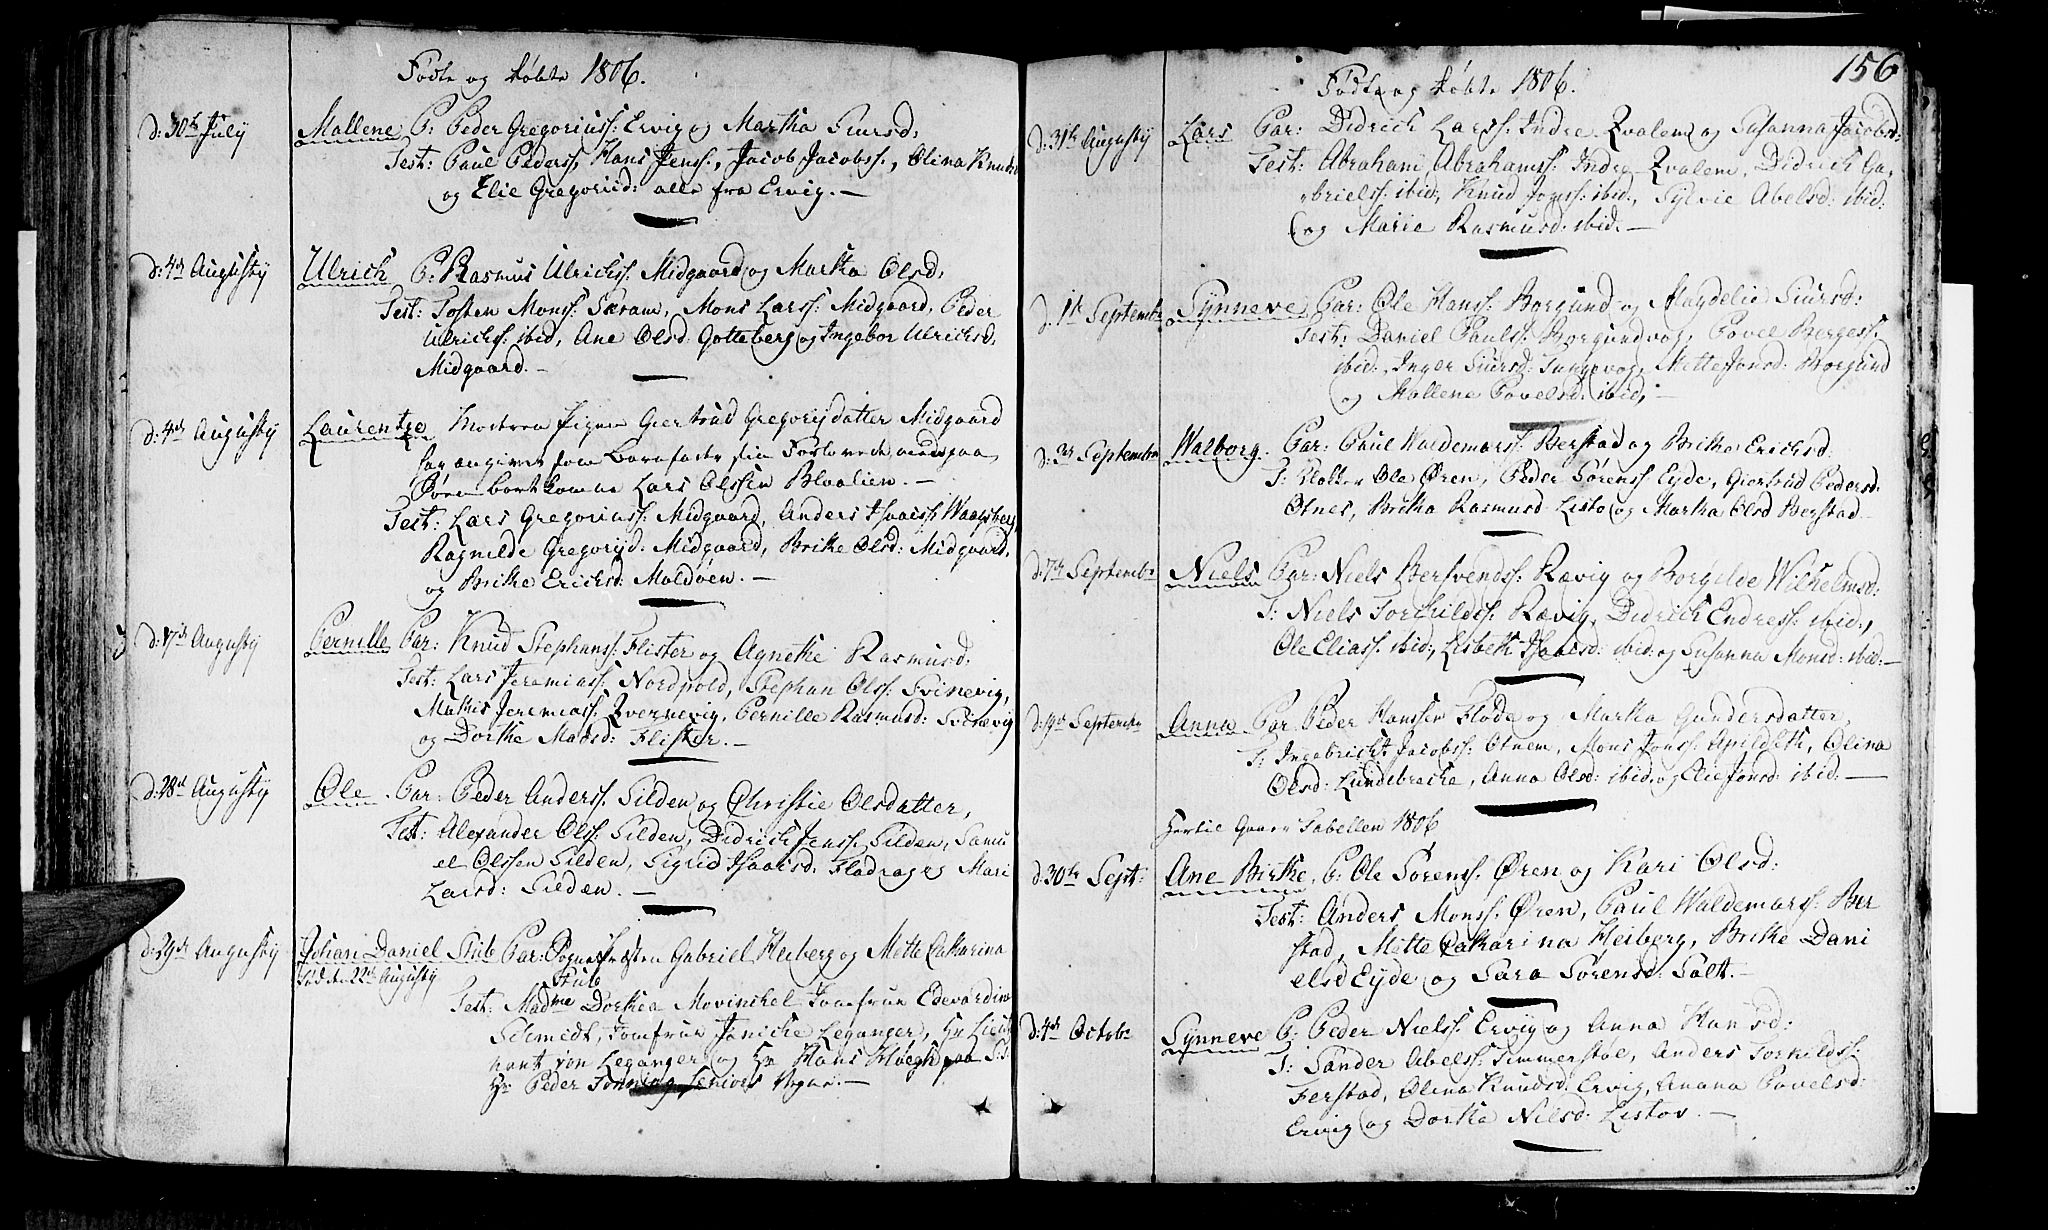 Födte og döbte 1806.
d: 30te July Mallene P: Peder Gregoriuss: Ervig og Martha Siursd:
Test: Paul Peders:, Hans Jenss:, Jacob Jacobss:, Olina Knuds:
og Elie Gregoriid: alle fra Ervig. —
d: 4de Augustÿ Ulrich P: Rasmus Ulrichss: Midgaard og Martha Olsd:
Test: Tosten Monss: Skram, Mons Larss: Midgaard, Peder
Ulrichss: ibid, Ane Olsd: Gotteberg og Ingebor Ulrichsd:
Midgaard. —
d: 4de Augustÿ Laurentze Moderen Pigen Giertrud Gregorÿdatter Midgaard
har angivet som Barnefader sin Forlovede
bortkomne Lars Olssen Blaalien. —
Test: Lars Gregoriuss: Midgaard, Anders Isaacs: Waagsberg
Ragnilde Gregorÿd: Midgaard, Brithe Olsd: Midgaard,
og Brithe Ericksd: Moldöen. —
d: 17de Augustÿ Pernille Par: Knud Stephanss: Flister og Agnethe Rasmusd:
Test: Lars Jeremiass: Nordpold, Stephan Olss: Svinevig,
Mathis Jeremiass: Qvernevig, Pernille Rasmusd: Svinevig
og Dorthe Madsd: Flister. —
d: 28de Augustÿ Ole Par: Peder Anderss: Silden og Christie Olsdatter,
Test: Alexander Olss: Silden, Didrich Jenss: Silden, Samu
el Olssen Silden, Sigrid Isaacsd: Flado og Mari
Larsd: Silden. —
d: 29de Augustÿ Johan Daniel Stub Par: Sognepræsten Gabriel Heiberg og Mette Catharina
föd den 22de Augustÿ Stub
Test: Madme Dorthea Movinchel Jomfrue Edevardine
Schmidt, Jomfrue Jeniche Leganger, Hr Lieut
nant von Leganger og Hr Hans Höegh
Hr Peder Tönning Seniors —
156
Födte og döbte 1806.
d: 31te Augustÿ Lars Par: Didrich Larss: Indre Qvalem og Susanna Jacobsd:
Test: Abraham Abrahamss: Indre Qvalem, Didrich Ga,
brielss: ibid:, Knud Jonss: ibid:, Sylvie Abelsd: ibid:
og Marie Rasmusd: ibid. —
d: 1te Septembr Synneve Par: Ole Hanss: Borgund og Magdelie Siursd:
Test: Daniel Paulss: Borgundvog, Povel Bergess:
ibid:, Inger Siursd: Tungevog, Mette Jonsd: Borgund
og Mallene Povelsd: ibid: —
d: 3de Septembr Walborg. Par: Paul Waldemarss: Berstad og Brithe Ericksd:
T: Klokker Ole Ören, Peder Sörenss: Eyde, Giertrud Pedersd:
Otnes, Britha Rasmusd Listo og Martha Olsd Berstad —
d: 7de Septembr Niels Par: Niels Bersvends: Rævig og Borgilde Wilhelmsd:
T: Niels Torchildss: Rævig, Didrich Endress: ibid:,
Ole Eliass: ibid:, Lisbeth Isaacsd: ibid: og Susanna Monsd: ibid: —
d: 9de Septembr Anna Par: Peder Hanssen Flode og Martha Gundersdatter,
T: Ingebricht Jacobss: Otnem, Mons Jonss: Apildeth, Olina
Olsd: Lundebrecke, Anna Olsd: ibid: og Elie Jonsd: ibid: —
Hertil gaaer Tabellen 1806
d: 30te Sept: Ane Birthe P: Ole Sörenss: Ören og Kari Olsd:
Test: Anders Monss: Ören, Paul Waldemarss: Ber
stad, Mette Catharina Heiberg, Brithe Dani
elsd Eyde og Sara Sörensd: Salt. —
d: 4de Octobr Synneve P: Peder Nielss: Ervig og Anna Hansd:
T: Sander Abelss: Timmerstöl, Anders Torkildss:
Ferstad, Olina Knudsd: Ervig, Anana Povelsd:
Ervig og Dorthe Nielsd: Listov. —